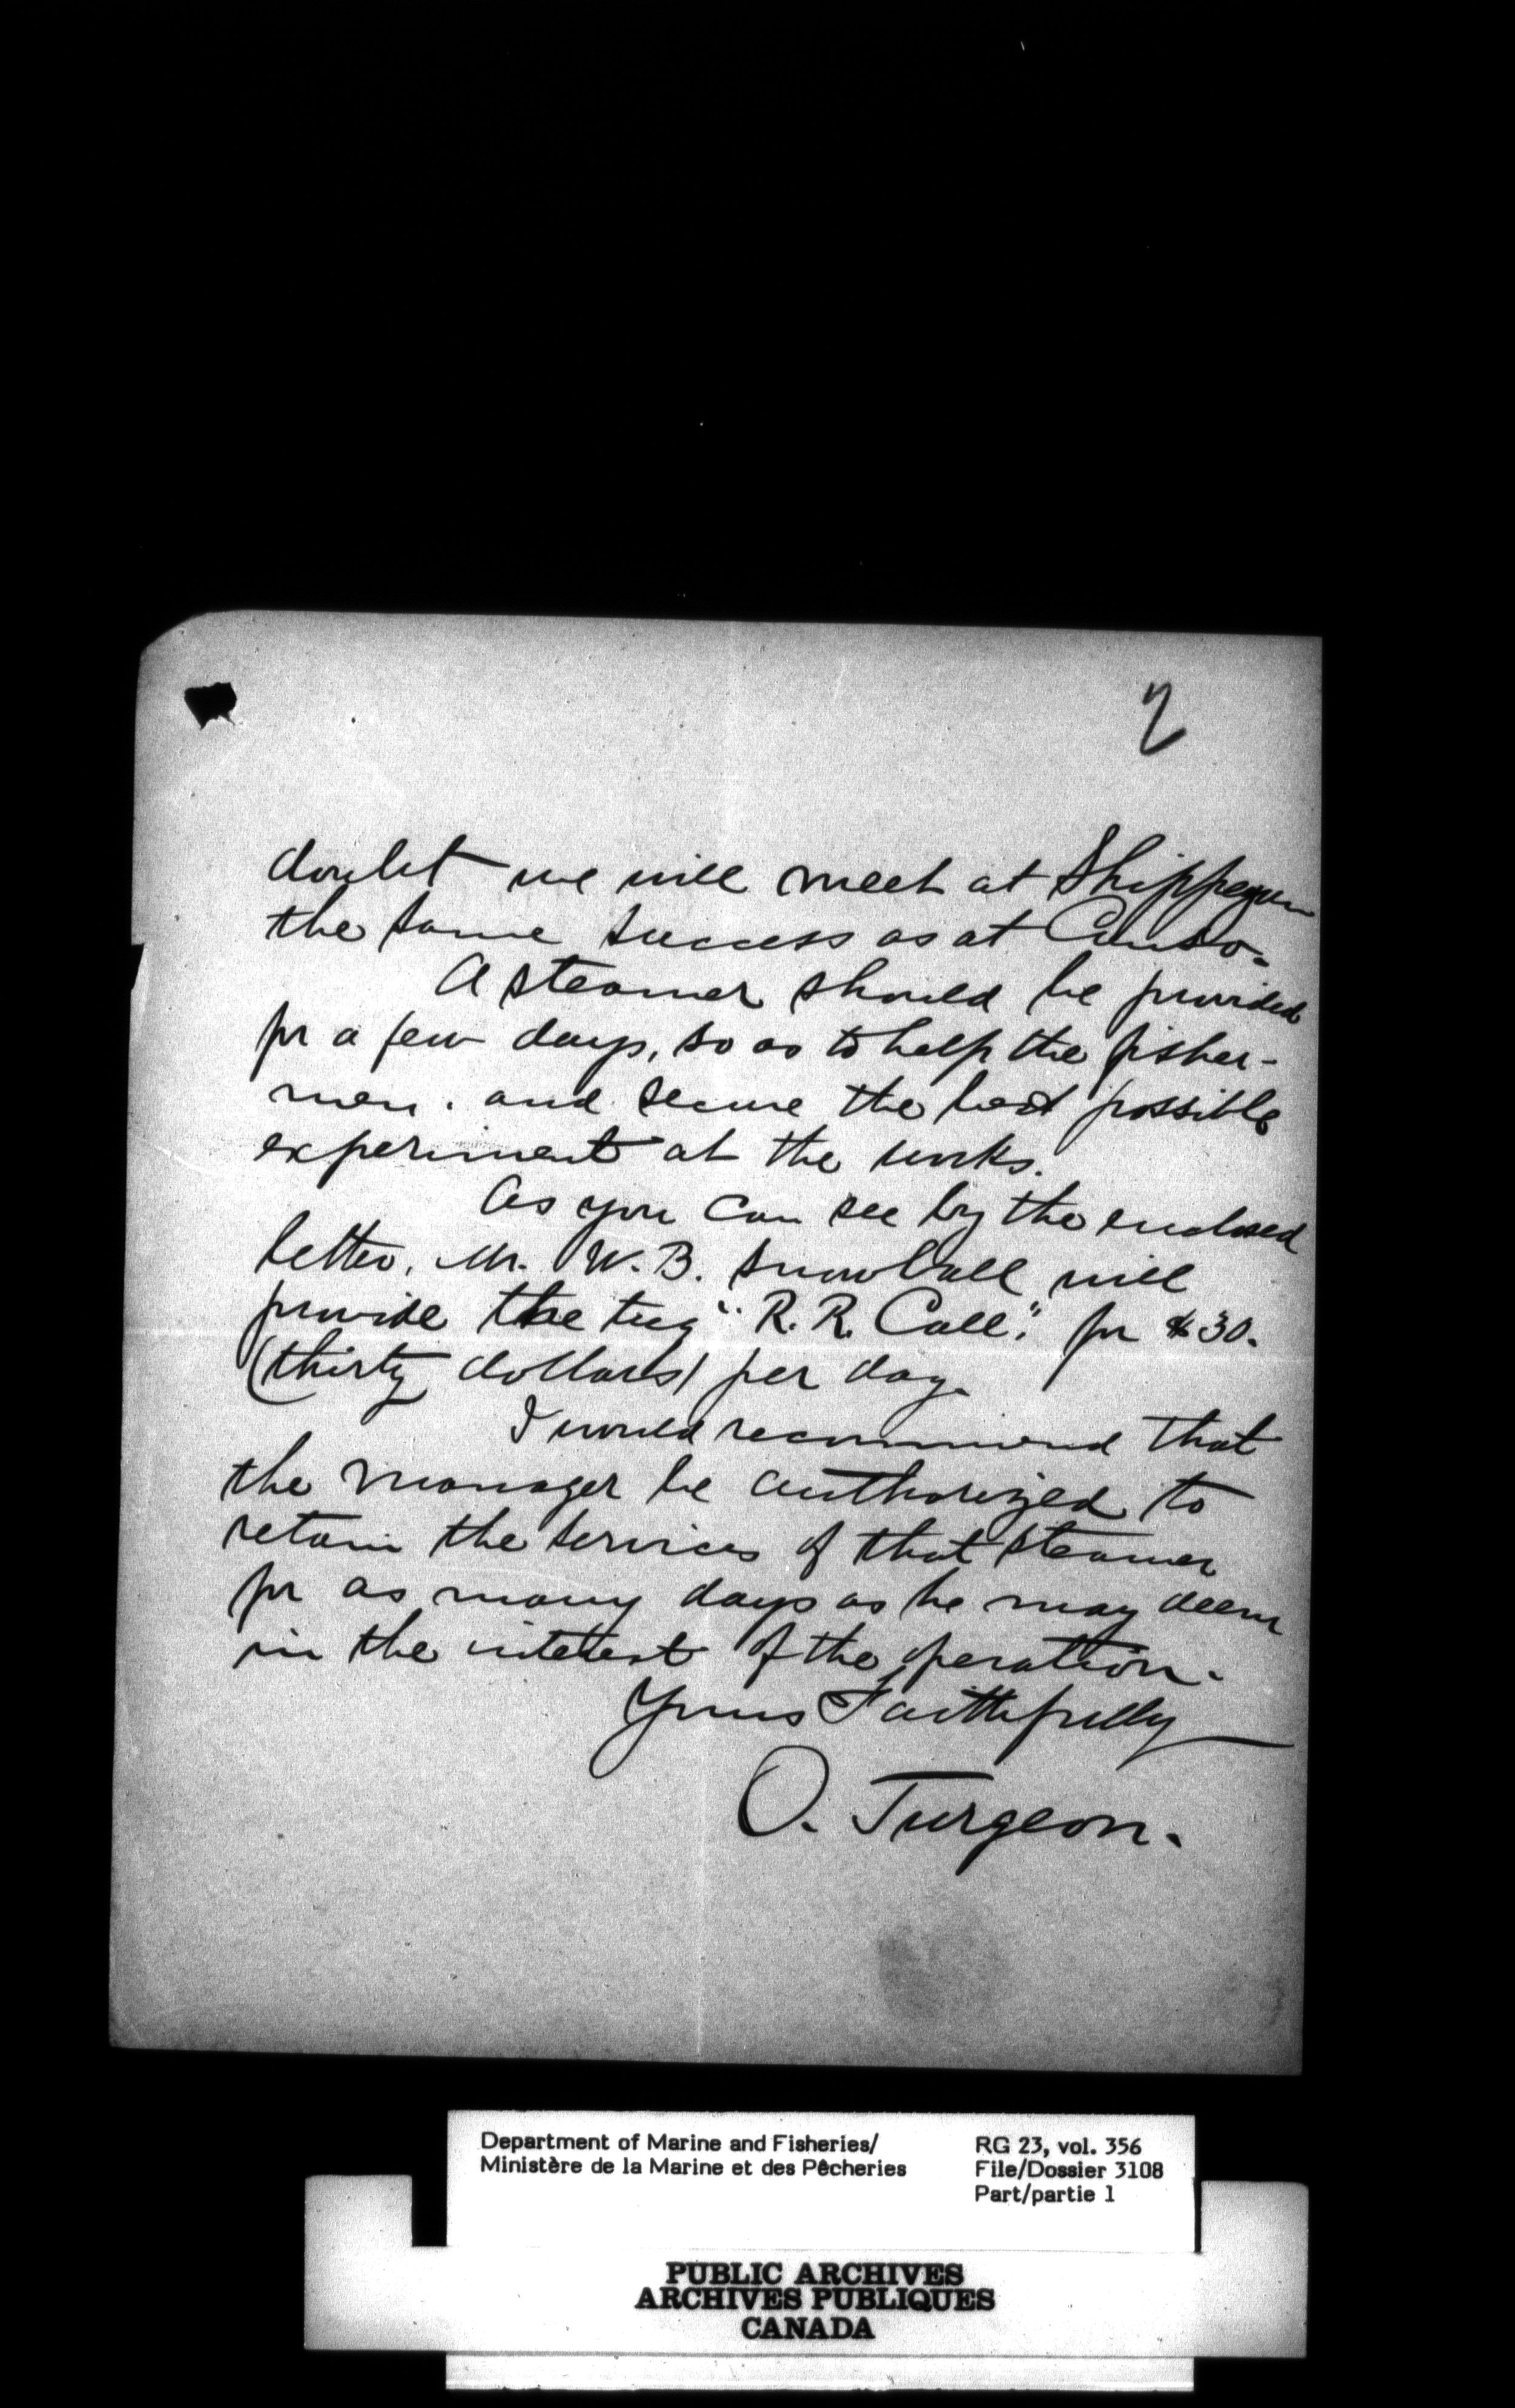 2
doubt we will meet at Shippegan
the same success as at Canso.
A steamer should be provided
for a few days, so as to help the fisher-
men. and secure the best possible
experiment at the works.
As you can see by the enclosed
letter, Mr. W. B. Snowball will
provide the tug "R. R. Call". for $30.
(thirty dollars) per day.
I would recommend that
the manager be authorized to
retain the services of that steamer
for as many days as he may deem
in the interest of the operation.
Yours Faithfully
O. Turgeon.
Department of Marine and Fisheries/
Ministère de la Marine et des Pêcheries
RG 23, vol. 356
File/Dossier 3108
Part/partie 1
PUBLIC ARCHIVES
ARCHIVES PUBLIQUES
CANADA